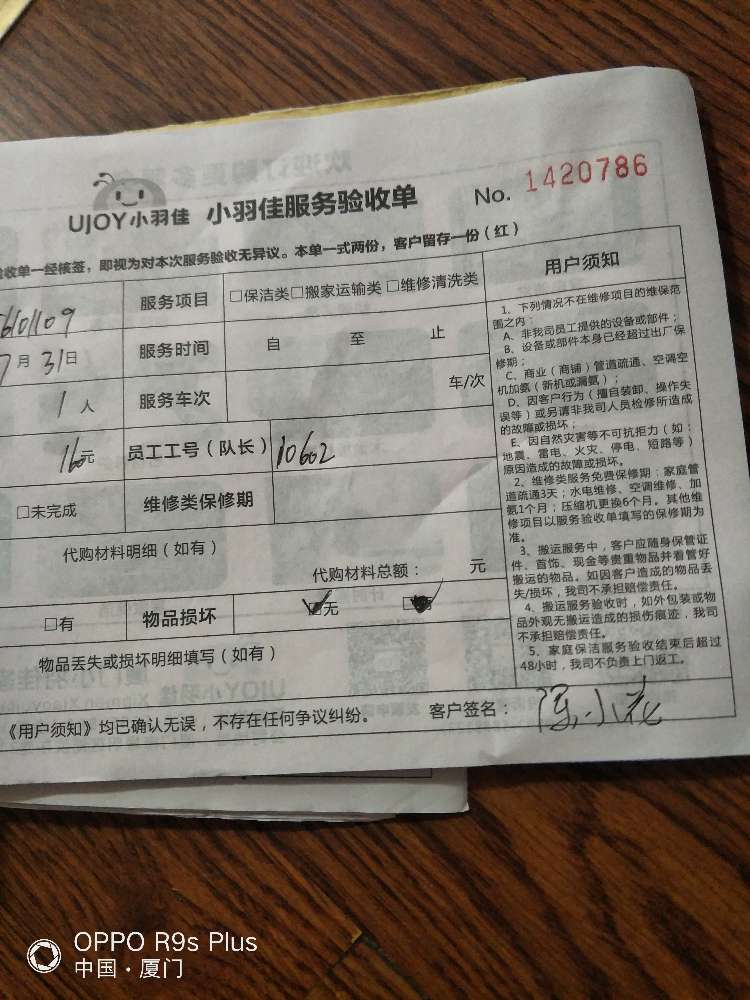 UJOY小羽佳 小羽佳服务验收单 No. 1420786
验收单一经核签，即视为对本次服务验收无异议。本单一式两份，客户留存一份（红）
服务项目 □保洁类□搬家运输类□维修清洗类
7月31日 服务时间 自 至 止
1人 服务车次 车/次
160元 员工工号（队长） 10602
□未完成 维修类保修期
代购材料明细（如有）
代购材料总额： 元
□有 物品损坏 ☑无
物品丢失或损坏明细填写（如有）
《用户须知》均已确认无误，不存在任何争议纠纷。 客户签名： 陈小花
用户须知
1、下列情况不在维修项目的维保范
围之内：
A、非我司员工提供的设备或部件；
B、设备或部件本身已经超过出厂保
修期；
C、商业（商铺）管道疏通、空调空
机加氨（新机或漏氨）；
D、因客户行为（擅自装卸、操作失
误等）或另请非我司人员检修所造成
的故障或损坏；
E、因自然灾害等不可抗拒力（如：
地震、雷电、火灾、停电、短路等）
原因造成的故障或损坏。
2、维修类服务免费保修期：家庭管
道疏通3天；水电维修、空调维修、加
氨1个月；压缩机更换6个月。其他维
修项目以服务验收单填写的保修期为
准。
3、搬运服务中，客户应随身保管证
件、首饰、现金等贵重物品并看管好
搬运的物品。如因客户造成的物品丢
失/损坏，我司不承担赔偿责任。
4、搬运服务验收时，如外包装或物
品外观无搬运造成的损伤痕迹，我司
不承担赔偿责任。
5、家庭保洁服务验收结束后超过
48小时，我司不负责上门返工。
OPPO R9s Plus
中国·厦门